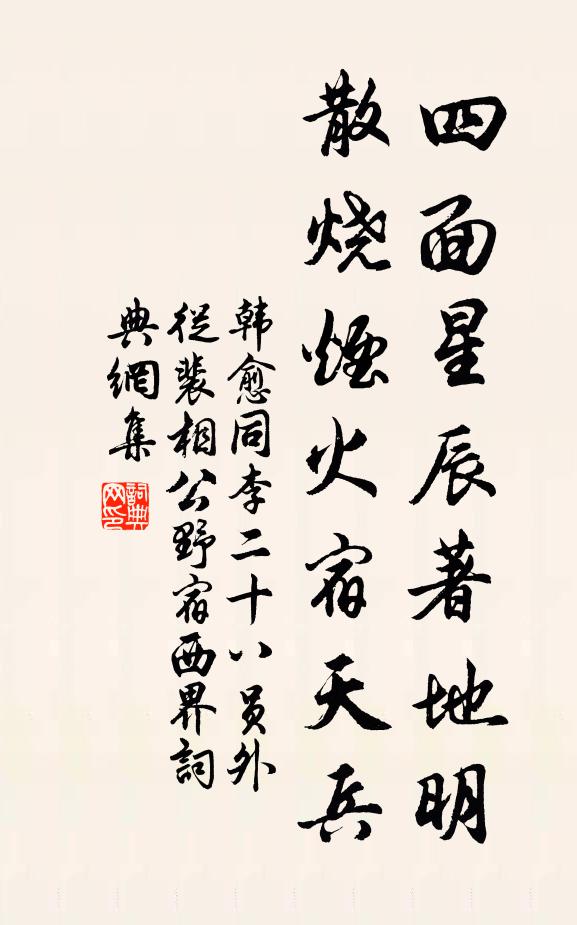 四面星辰著地明
散烧煙火宿天兵
韩愈同李二十八员外
從裴相公野宿西界詞
典網集
詞典
网印